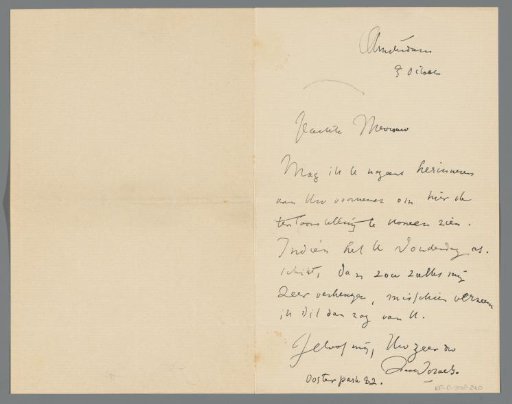 Amsterdam
9 October
Geachte Mevrouw
Mag ik U nogens herinneren
aan Uw voornemen om hier de
tentoonstelling te komen zien.
Indien het U Donderdag as.
schikt, dan zou zulks mij
zeer verheugen, misschien verneem
ik dit dan nog van U.
Geloof mij, Uw zeer dw
Oosterpark 82.